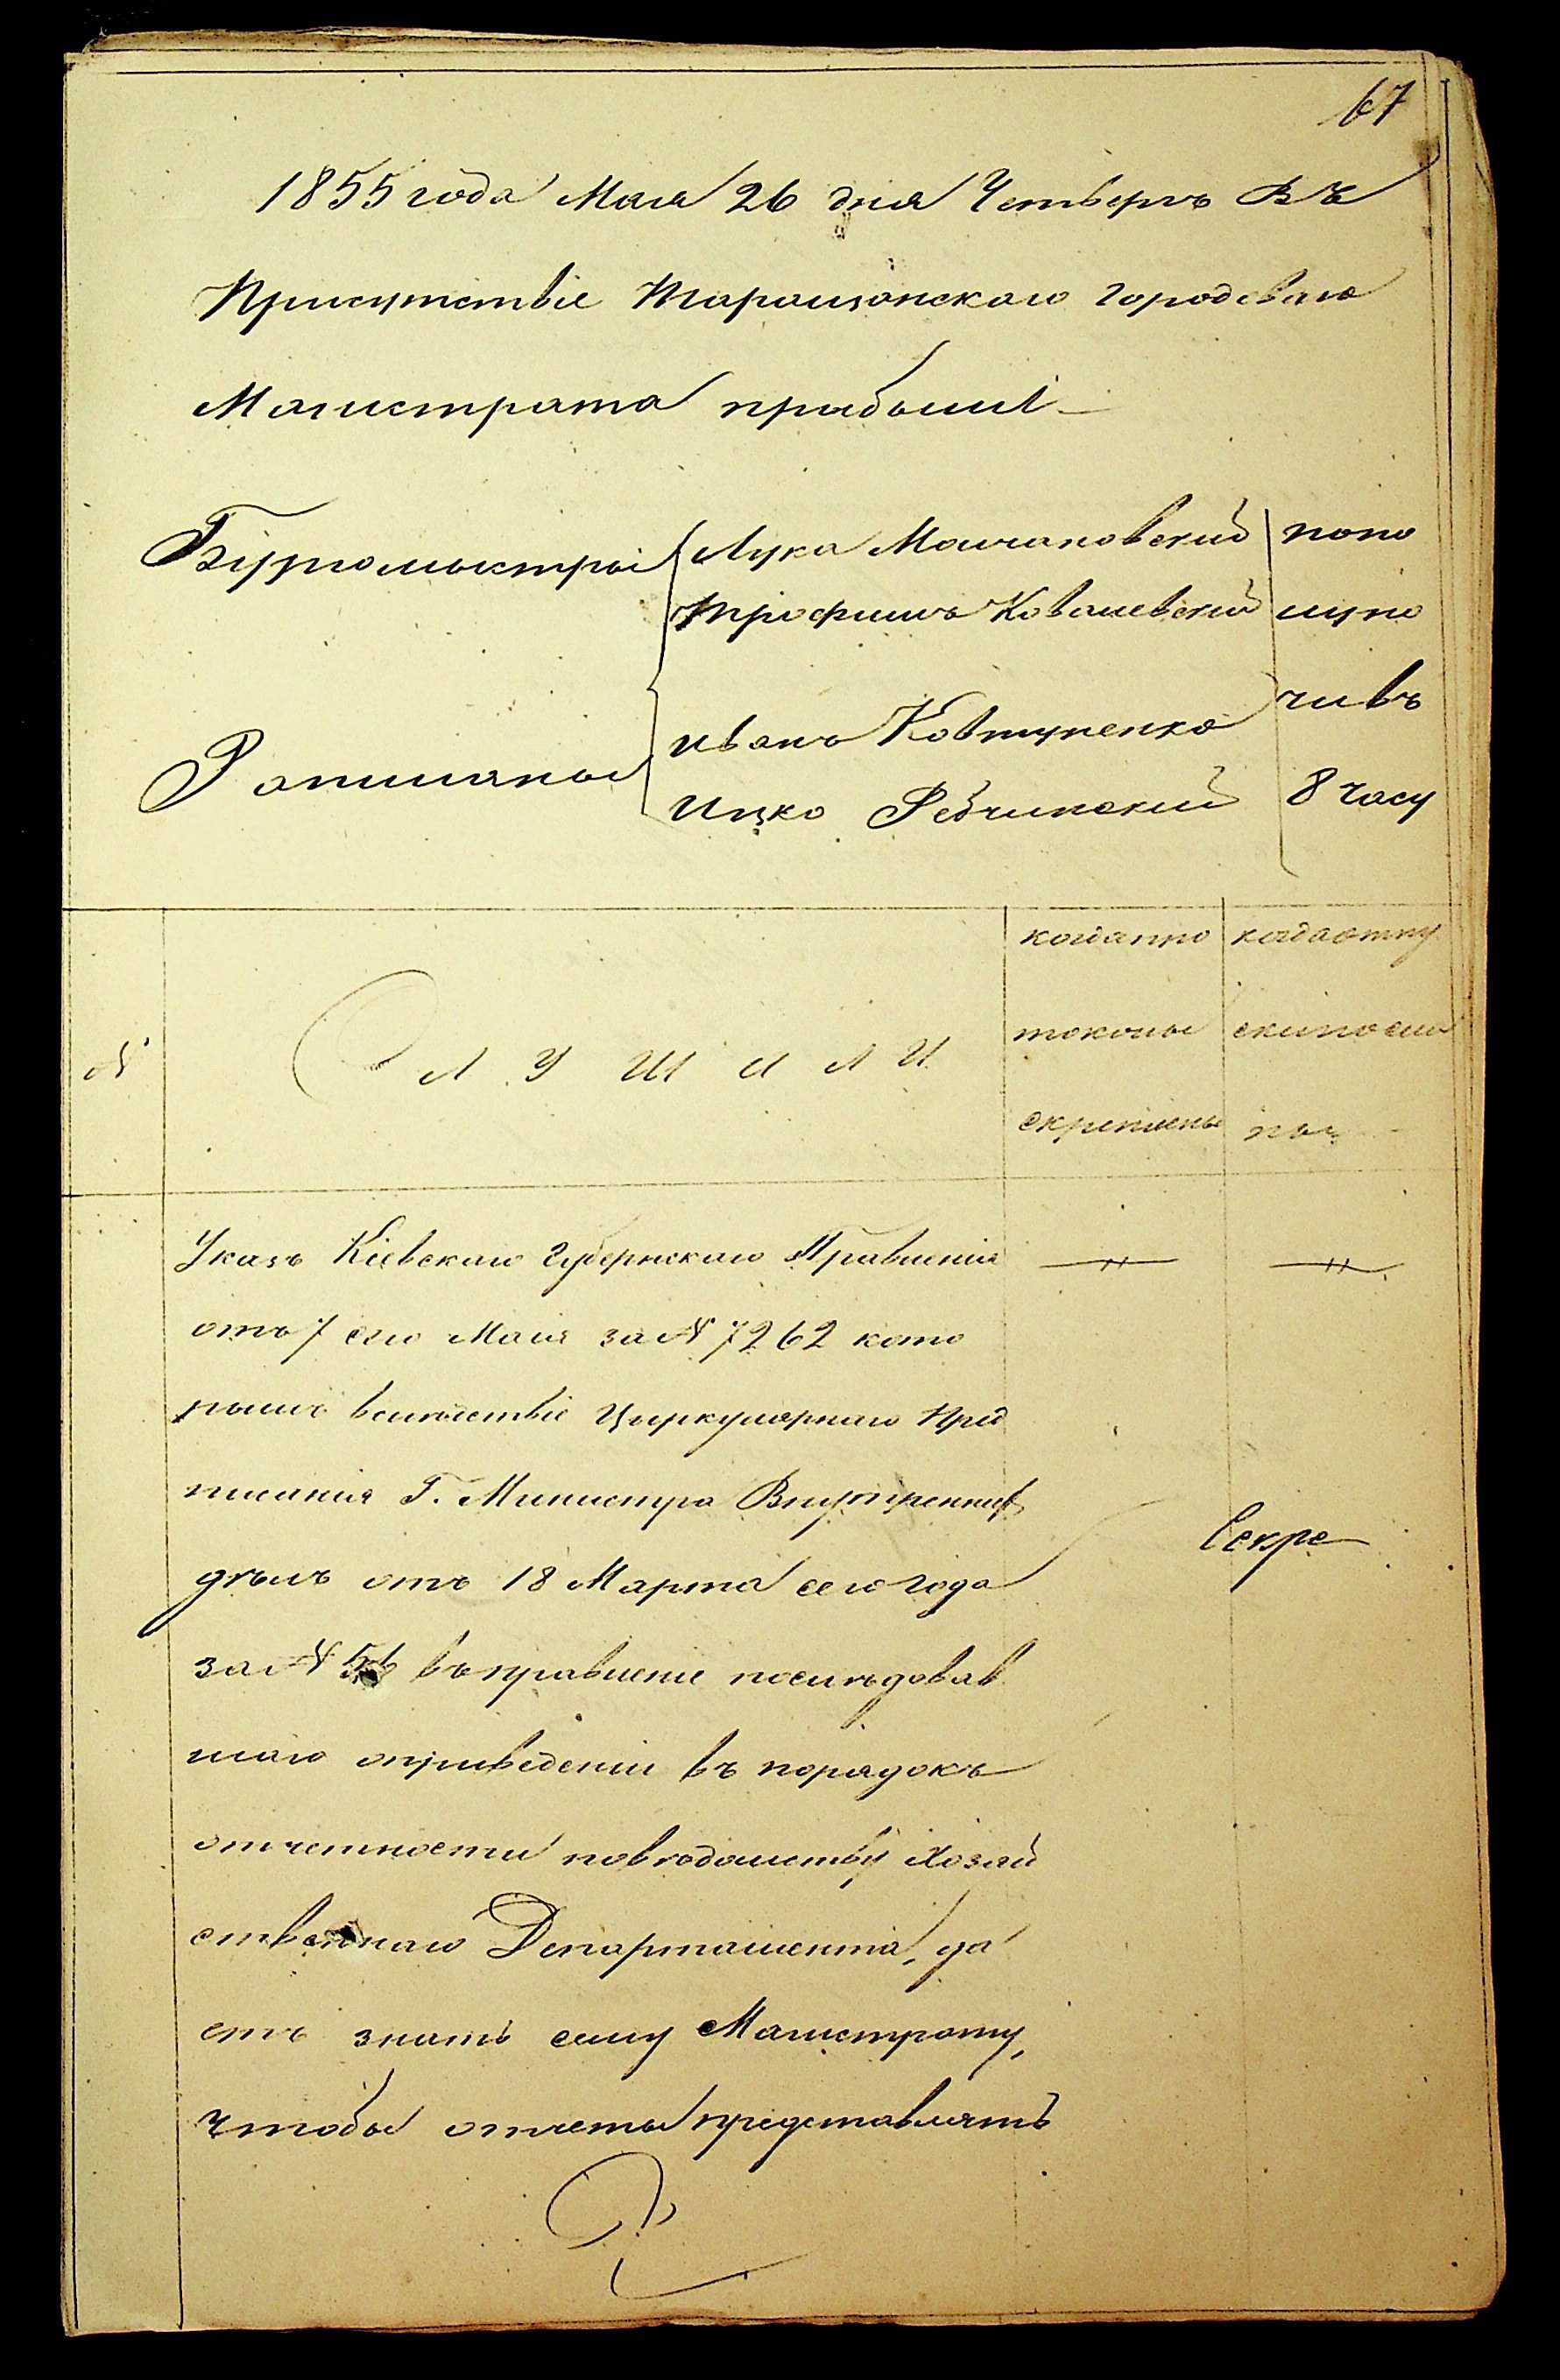 67
1855 года Мая 26 дня Четвергъ Въ
Присутствіе Таращанскаго городоваго
Магистрата прибыли
Бургомыстры
Лука Молчановскій
Трофимъ Ковалевскій
Ратманы
Иванъ Ковтуненко
Ицко Рабчинский
попо
луно
чивъ
8 часу
№
СЛУШАЛИ
когда про
токолы
скреплены
когда отпу
скъ посы
Указъ Кіевскаго Губернскаго Правленія
отъ 7 сего Маія за № 7262 кото
рымъ вслѣдствіе Циркулярнаго Пред
писанія Г. Министра Внутреннихъ
дѣлъ отъ 18 Марта сего года
за № 56 въ правленіе послѣдовав
шаго о приведеніи въ порядокъ
отчетности по вѣдомству Хозяй
ственнаго Департамента, да
етъ знать сему Магистрату,
чтобы отчеты представлять
Секре